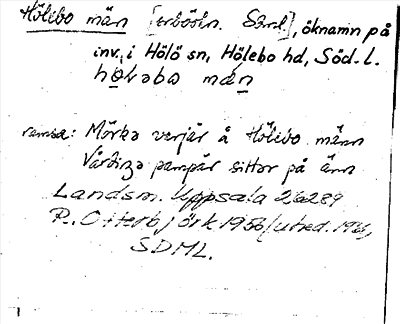 Hölebo män [ortbössln. Sörml.], öknamn på
inv. i Hölö sn, Hölebo hd, Söd.l.
holəbo män
ramsa: Mörkə verjär å Hölebo männ
Vårdingə pampär sittər på änn
Landsm. Uppsala 26289
R. Otterbjörk 1956 (uted. 196
SDML.